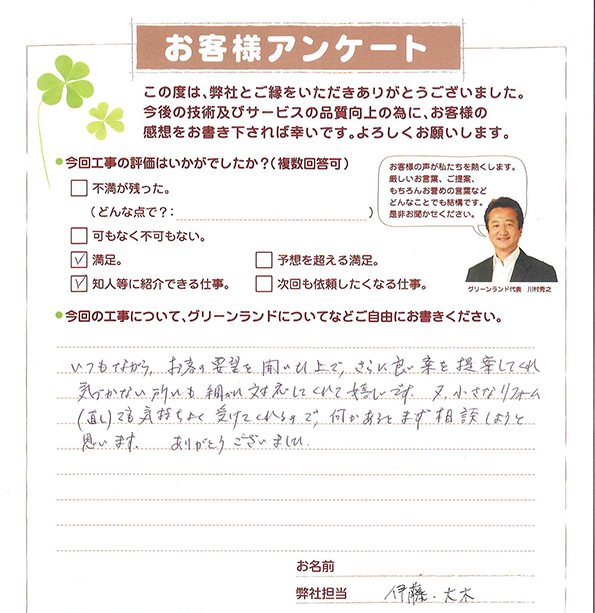 お客様アンケート
この度は、弊社とご縁をいただきありがとうございました。
今後の技術及びサービスの品質向上の為に、お客様の
感想をお書き下されば幸いです。よろしくお願いします。
今回工事の評価はいかがでしたか？（複数回答可）
不満が残った。
（どんな点で？： ）
可もなく不可もない。
満足。
予想を超える満足。
知人等に紹介できる仕事。
次回も依頼したくなる仕事。
お客様の声が私たちを熱くします。
厳しいお言葉、ご提案、
もちろんお誉めの言葉など
どんなことでも結構です。
是非お聞かせください。
グリーンランド代表 川村秀之
今回の工事について、グリーンランドについてなどご自由にお書きください。
いつもながら、お客の要望を聞いた上で、さらに良い案を提案してくれ
気づかない所にも細かに対応してくれて嬉しいです。又、小さなリフォーム
(直し)でも気持ちよく受けてくれるので、何かあるとまず相談しようと
思います。 ありがとうございました。
お名前
弊社担当 伊藤．大木